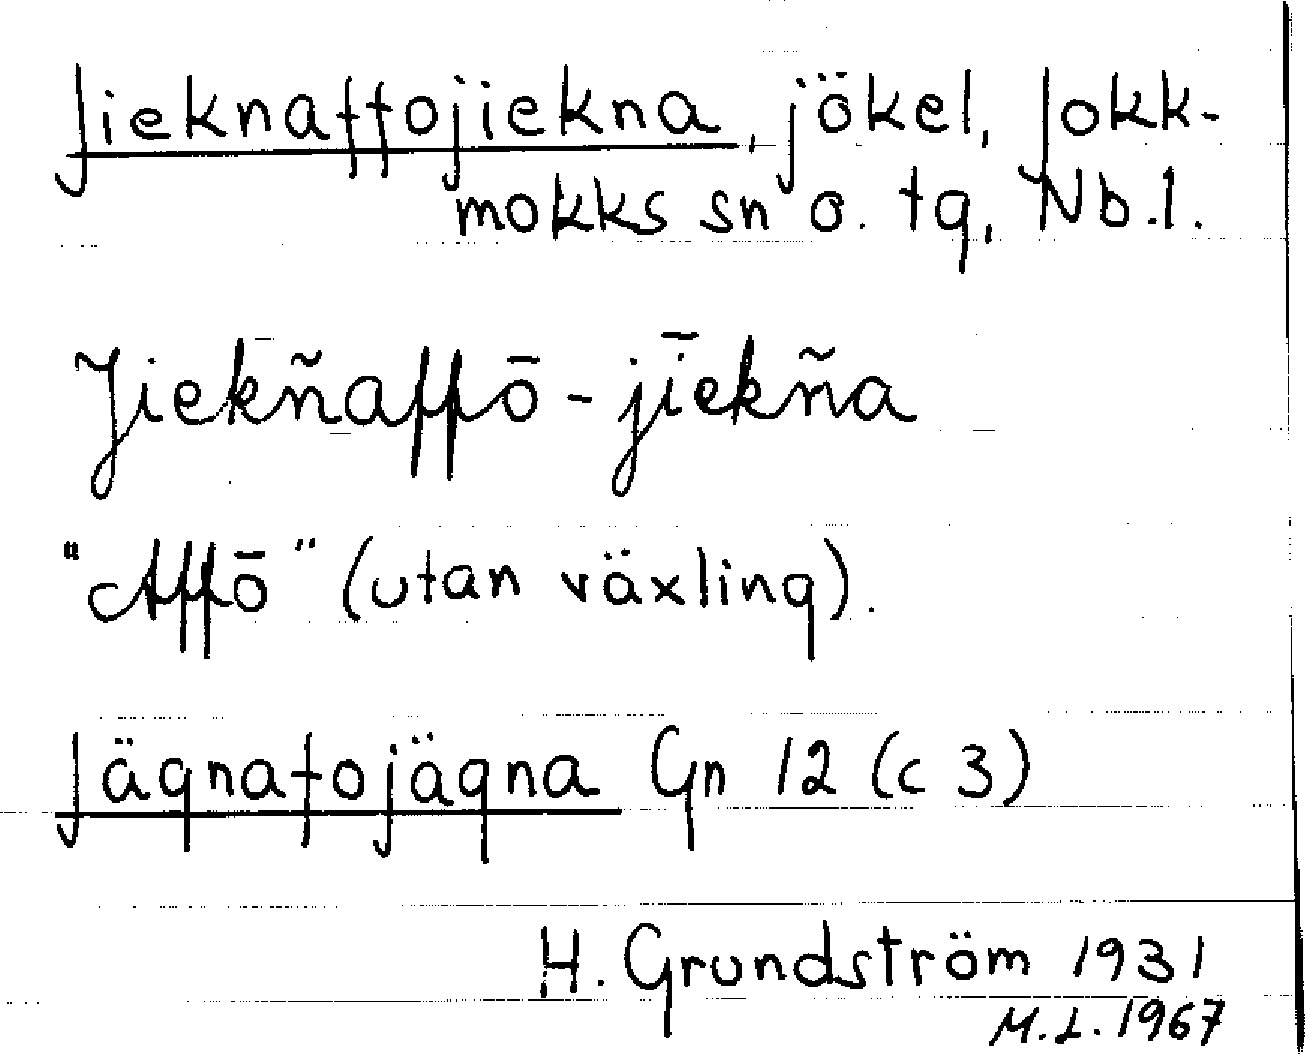 Jieknaffojiekna, jökel, Jokk-
mokks sn o. tg, Nb.l.
Jiekñaffō - jīekña
"Affō" (utan växling).
Jägnafojägna Gn 12 (c 3)
H. Grundström 1931
M.L. 1967